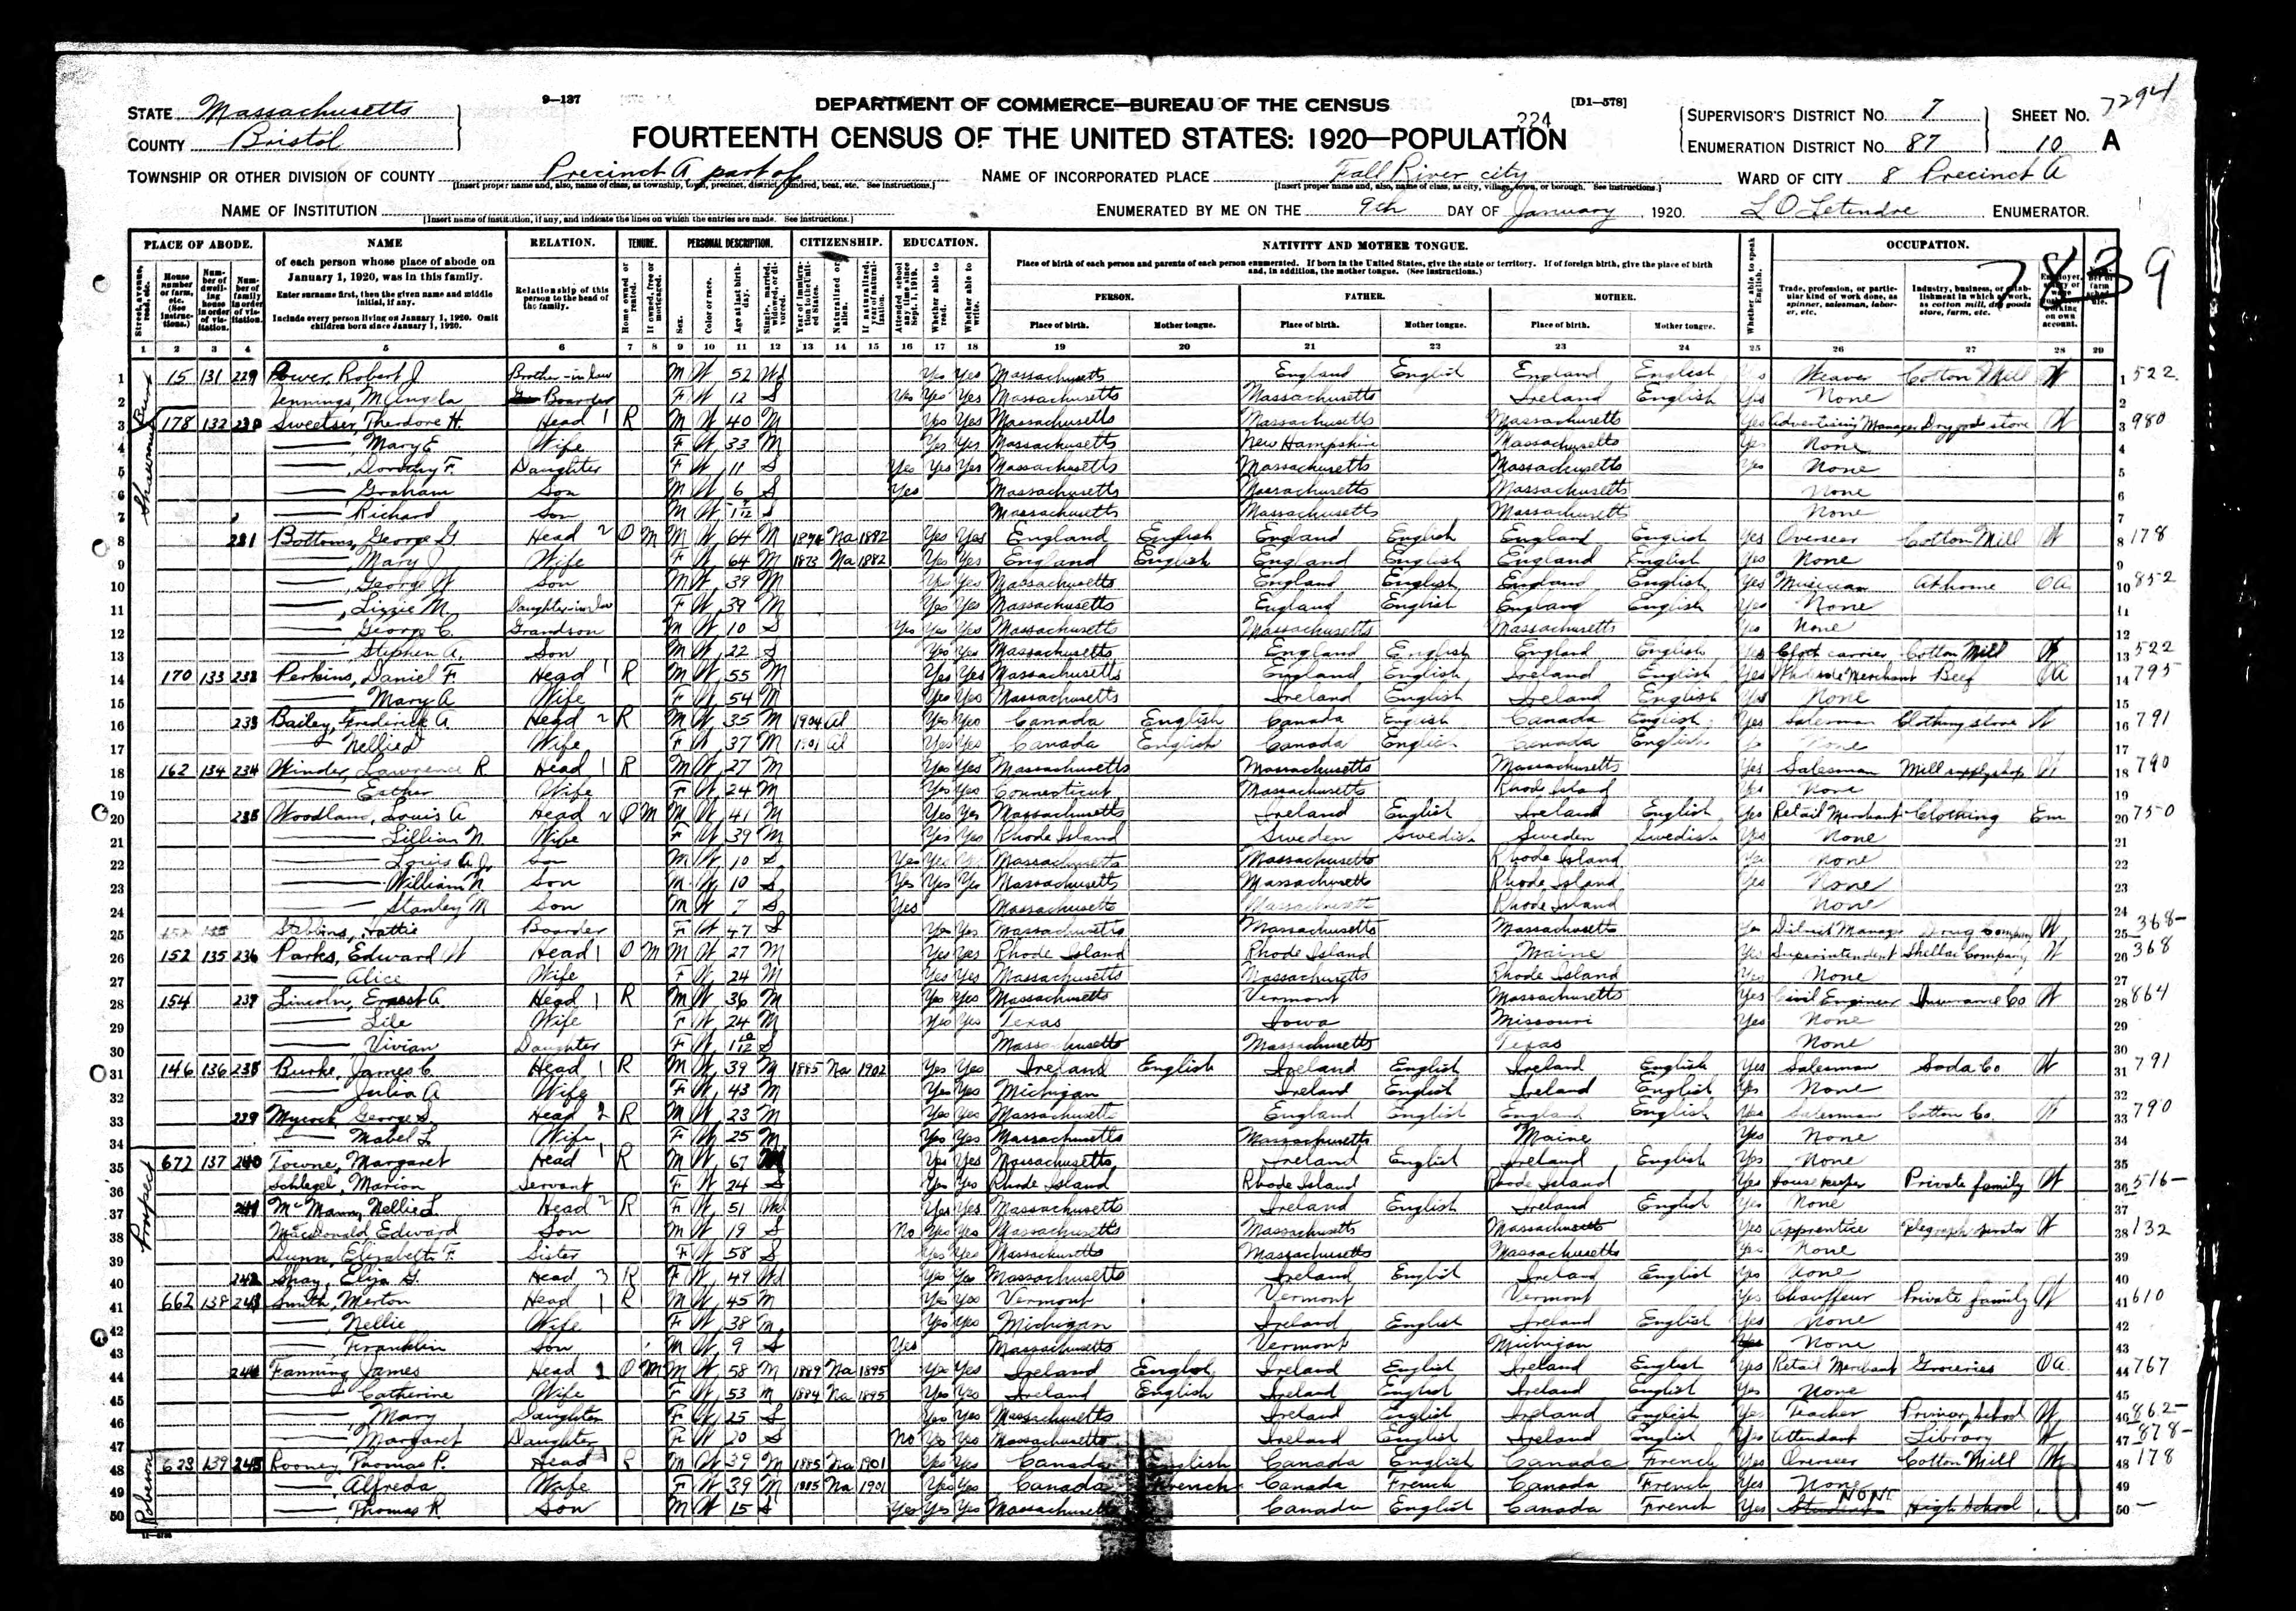 9—137
DEPARTMENT OF COMMERCE—BUREAU OF THE CENSUS
[D1—578]
7294
STATE Massachusetts
COUNTY Bristol
224
FOURTEENTH CENSUS OF THE UNITED STATES: 1920—POPULATION
SUPERVISOR'S DISTRICT NO. 7
ENUMERATION DISTRICT NO. 87
SHEET NO.
10 A
TOWNSHIP OR OTHER DIVISION OF COUNTY Precinct A part of
[Insert proper name and, also, name of class, as township, town, precinct, district, hundred, beat, etc. See instructions.]
NAME OF INCORPORATED PLACE Fall River city
[Insert proper name and, also, name of class, as city, village, town, or borough. See instructions.]
WARD OF CITY 8 Precinct A
NAME OF INSTITUTION
[Insert name of institution, if any, and indicate the lines on which the entries are made. See instructions.]
ENUMERATED BY ME ON THE 9th DAY OF January, 1920. L O Letendre ENUMERATOR.
PLACE OF ABODE. NAME RELATION. TENURE. PERSONAL DESCRIPTION. CITIZENSHIP. EDUCATION. NATIVITY AND MOTHER TONGUE. OCCUPATION.
of each person whose place of abode on January 1, 1920, was in this family.
Enter surname first, then the given name and middle initial, if any.
Include every person living on January 1, 1920. Omit children born since January 1, 1920.
Relationship of this person to the head of the family.
Place of birth of each person and parents of each person enumerated. If born in the United States, give the state or territory. If of foreign birth, give the place of birth and, in addition, the mother tongue. (See instructions.)
PERSON. FATHER. MOTHER.
Place of birth. Mother tongue. Place of birth. Mother tongue. Place of birth. Mother tongue.
Trade, profession, or particular kind of work done, as spinner, salesman, laborer, etc.
Industry, business, or establishment in which at work, as cotton mill, dry goods store, farm, etc.
1 2 3 4 5 6 7 8 9 10 11 12 13 14 15 16 17 18 19 20 21 22 23 24 25 26 27 28 29
1 15 131 229 Power, Robert J. Brother-in-law M W 52 Wd Yes Yes Massachusetts England English England English Weaver Cotton Mill W 1 522
2 Jennings, M Angela Boarder F W 12 S Yes Yes Yes Massachusetts Massachusetts Ireland English Yes None 2
3 178 132 230 Sweetser, Theodore H. Head 1 R M W 40 M Yes Yes Massachusetts Massachusetts Massachusetts Yes Advertising Manager Dry goods store W 3 980
4 —, Mary E Wife F W 33 M Yes Yes Massachusetts New Hampshire Massachusetts Yes None 4
5 —, Dorothy F. Daughter F W 11 S Yes Yes Yes Massachusetts Massachusetts Massachusetts Yes None 5
6 — Graham Son M W 6 S Yes Massachusetts Massachusetts Massachusetts None 6
7 — Richard Son M W S Massachusetts Massachusetts Massachusetts None 7
8 231 Bottoms, George G. Head 2 O M M W 64 M Na 1882 Yes Yes England English England English England English Yes Overseer Cotton Mill W 8 178
9 —, Mary J Wife F W 64 M 1873 Na 1882 Yes Yes England English England English England English Yes None 9
10 —, George W Son M W 39 M Yes Yes Massachusetts England English England English Yes Musician At home OA 10 852
11 —, Lizzie M. Daughter-in-law F W 39 M Yes Yes Massachusetts England English England English Yes None 11
12 — George C. Grandson M W 10 S Yes Yes Yes Massachusetts Massachusetts Massachusetts Yes None 12
13 —, Stephen A. Son M W 22 S Yes Yes Massachusetts England English England English Yes Cloth carrier Cotton Mill W 13 522
14 170 133 232 Perkins, Daniel F. Head 1 R M W 55 M Yes Yes Massachusetts England English Ireland English Yes Merchant Beef OA 14 795
15 — Mary A Wife F W 54 M Yes Yes Massachusetts Ireland English Ireland English Yes None 15
16 233 Bailey, Frederick A. Head 2 R M W 35 M 1904 Al Yes Yes Canada English Canada English Canada English Yes Salesman Clothing store W 16 791
17 — Nellie D Wife F W 37 M 1901 Al Yes Yes Canada English Canada English Canada English None 17
18 162 134 234 Winder, Lawrence R Head 1 R M W 27 M Yes Yes Massachusetts Massachusetts Massachusetts Yes Salesman Mill supply shop W 18 790
19 — Esther Wife F W 24 M Yes Yes Connecticut Massachusetts Rhode Island Yes None 19
20 235 Woodland, Louis A Head 2 O M M W 41 M Yes Yes Massachusetts Ireland English Ireland English Yes Retail Merchant Clothing Em 20 750
21 — Lillian N. Wife F W 39 M Yes Yes Rhode Island Sweden Swedish Sweden Swedish Yes None 21
22 — Louis A Jr Son M W 10 S Yes Yes Yes Massachusetts Massachusetts Rhode Island Yes None 22
23 — William N Son M W 10 S Yes Yes Yes Massachusetts Massachusetts Rhode Island Yes None 23
24 — Stanley M Son M W 7 S Yes Massachusetts Massachusetts Rhode Island None 24
25 152 135 Stebbins, Hattie Boarder F W 47 S Yes Yes Massachusetts Massachusetts Massachusetts Yes District Manager Drug Company W 25 368—
26 152 135 236 Parks, Edward W Head 1 O M M W 27 M Yes Yes Rhode Island Rhode Island Maine Yes Superintendent Shellac Company W 26 368
27 — Alice Wife F W 24 M Yes Yes Massachusetts Massachusetts Rhode Island Yes None 27
28 154 237 Lincoln, Ernest A. Head 1 R M W 36 M Yes Yes Massachusetts Vermont Massachusetts Yes Civil Engineer Insurance Co W 28 864
29 — Lile Wife F W 24 M Yes Yes Texas Iowa Missouri Yes None 29
30 — Vivian Daughter F W S Massachusetts Massachusetts Texas None 30
31 146 136 238 Burke, James C. Head 1 R M W 39 M 1885 Na 1902 Yes Yes Ireland English Ireland English Ireland English Yes Salesman Soda Co. W 31 791
32 — Julia A Wife F W 43 M Yes Yes Michigan Ireland English Ireland English Yes None 32
33 239 Mycock, George S. Head 2 R M W 23 M Yes Yes Massachusetts England English England English Yes Salesman Cotton Co. W 33 790
34 — Mabel L Wife F W 25 M Yes Yes Massachusetts Massachusetts Maine Yes None 34
35 672 137 240 Towne, Margaret Head 1 R M W 67 Yes Yes Massachusetts Ireland English Ireland English Yes None 35
36 Schlegel, Marion Servant F W 24 S Yes Yes Rhode Island Rhode Island Rhode Island Yes Housekeeper Private family W 36 516—
37 241 McMann, Nellie L. Head 2 R F W 51 Wd Yes Yes Massachusetts Ireland English Ireland English Yes None 37
38 MacDonald Edward Son M W 19 S No Yes Yes Massachusetts Massachusetts Massachusetts Yes Apprentice W 38 132
39 Dunn, Elizabeth F. Sister F W 58 S Yes Yes Massachusetts Massachusetts Massachusetts Yes None 39
40 242 Shay, Eliza G. Head 3 R F W 49 Wd Yes Yes Massachusetts Ireland English Ireland English Yes None 40
41 662 138 243 Smith, Merton Head 1 R M W 45 M Yes Yes Vermont Vermont Vermont Yes Chauffeur Private family W 41 610
42 —, Nellie Wife F W 38 M Yes Yes Michigan Ireland English Ireland English Yes None 42
43 —, Franklin Son M W 9 S Yes Massachusetts Vermont Michigan None 43
44 244 Fanning, James Head 2 O M M W 58 M 1889 Na 1895 Yes Yes Ireland English Ireland English Ireland English Yes Retail Merchant Groceries OA 44 767
45 — Catherine Wife F W 53 M 1884 Na 1895 Yes Yes Ireland English Ireland English Ireland English Yes None 45
46 —, Mary Daughter F W 25 S Yes Yes Massachusetts Ireland English Ireland English Yes Teacher Primary School W 46 862—
47 — Margaret Daughter F W 20 S No Yes Yes Massachusetts Ireland English Ireland English Yes Attendant Library W 47 878—
48 623 139 245 Rooney, Thomas P. Head 1 R M W 39 M 1885 Na 1901 Yes Yes Canada English Canada English Canada French Yes Overseer Cotton Mill W 48 178
49 —, Alfreda Wife F W 39 M 1885 Na 1901 Yes Yes Canada French Canada French Canada French Yes None 49
50 —, Thomas R. Son M W 15 S Yes Yes Yes Massachusetts Canada English Canada French Yes Student NONE High School 50 —
Prospect
Robeson